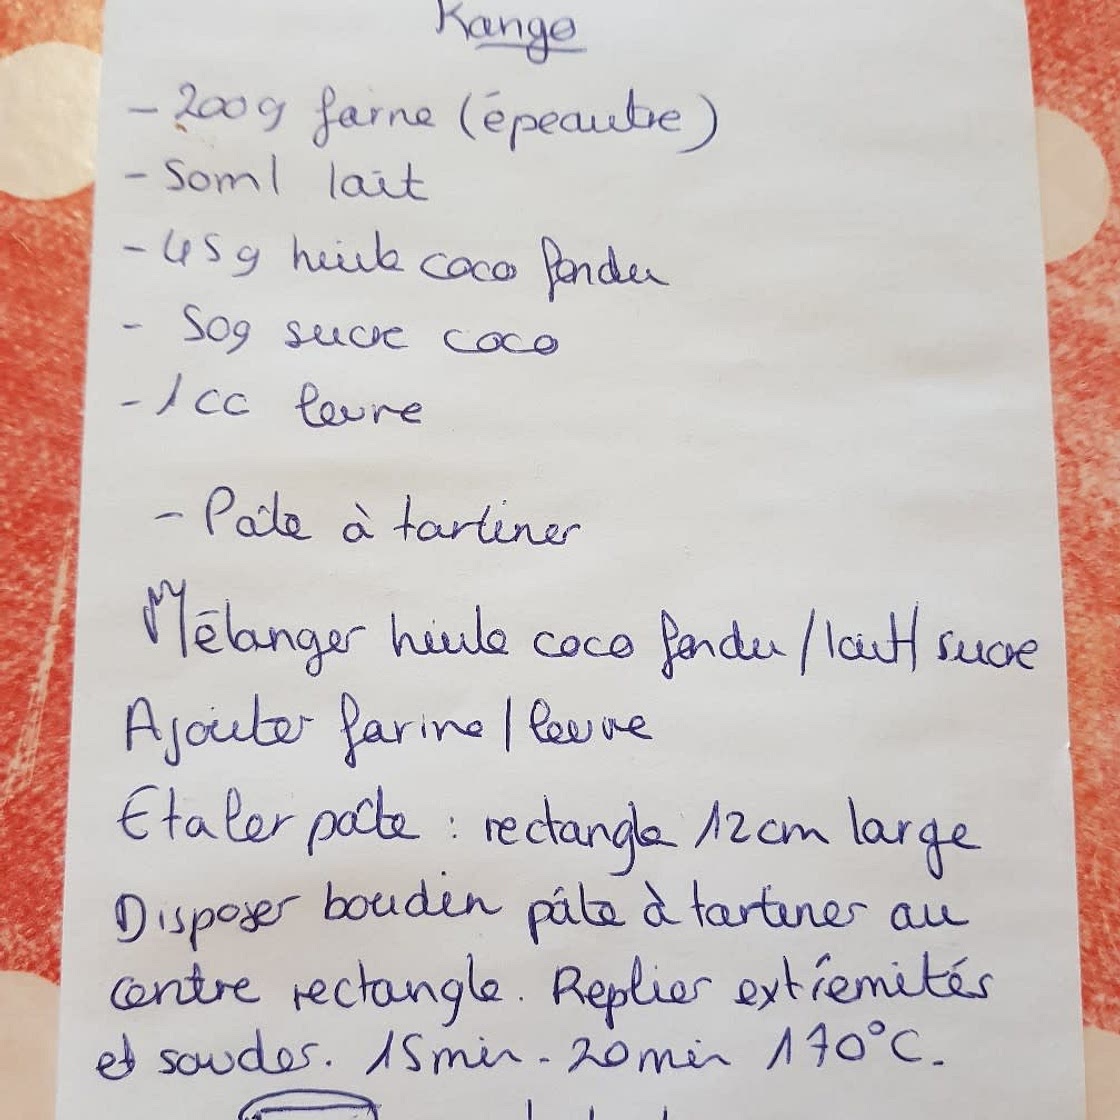 Kango
- 200g farine (épeautre)
- 50ml lait
- 45g huile coco fondu
- 50g sucre coco
- 1 cc levure
- Pâte à tartiner
Mélanger huile coco fondu / lait / sucre
Ajouter farine / levure
Etaler pâte : rectangle 12cm large
Disposer boudin pâte à tartiner au
centre rectangle. Replier extrémités
et souder. 15min - 20min 170°C.